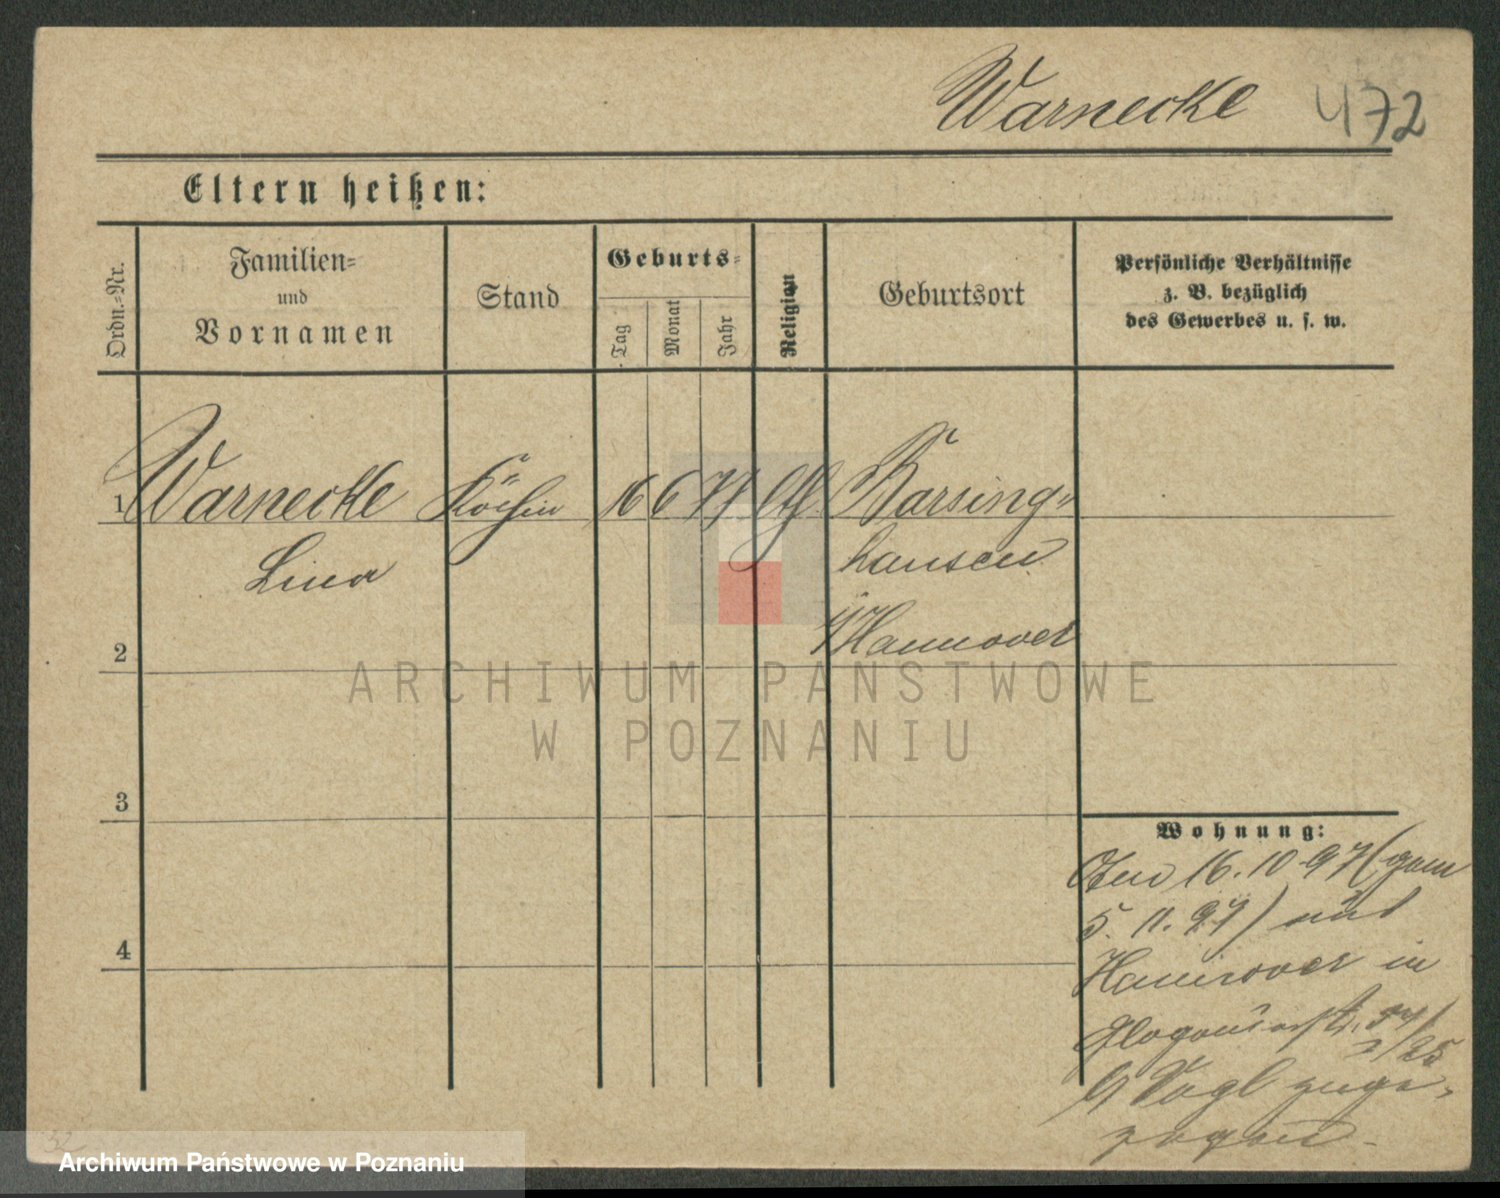 Warnecke 472
Eltern heißen:
Ordn.-Nr.
Familien-
und
Vornamen
Stand
Geburts-
Tag
Monat
Jahr
Religion
Geburtsort
Persönliche Verhältnisse
z. B. bezüglich
des Gewerbes u. s. w.
1 Warnecke Köchin 16 6 77 Barsing-
Lina
hausen
Hannover
2
3
4
Wohnung:
16. 10 97 (gem
5. 11. 97) aus
Hannover in
Glogauerstr.
zuge-
zogen.
ARCHIWUM PAŃSTWOWE
W POZNANIU
Archiwum Państwowe w Poznaniu